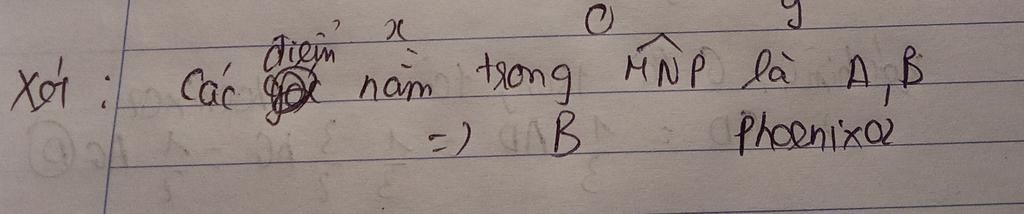 x O y
Xới : Các điểm nằm trong \widehat{MNP} là A, B
=) B phoenixa2